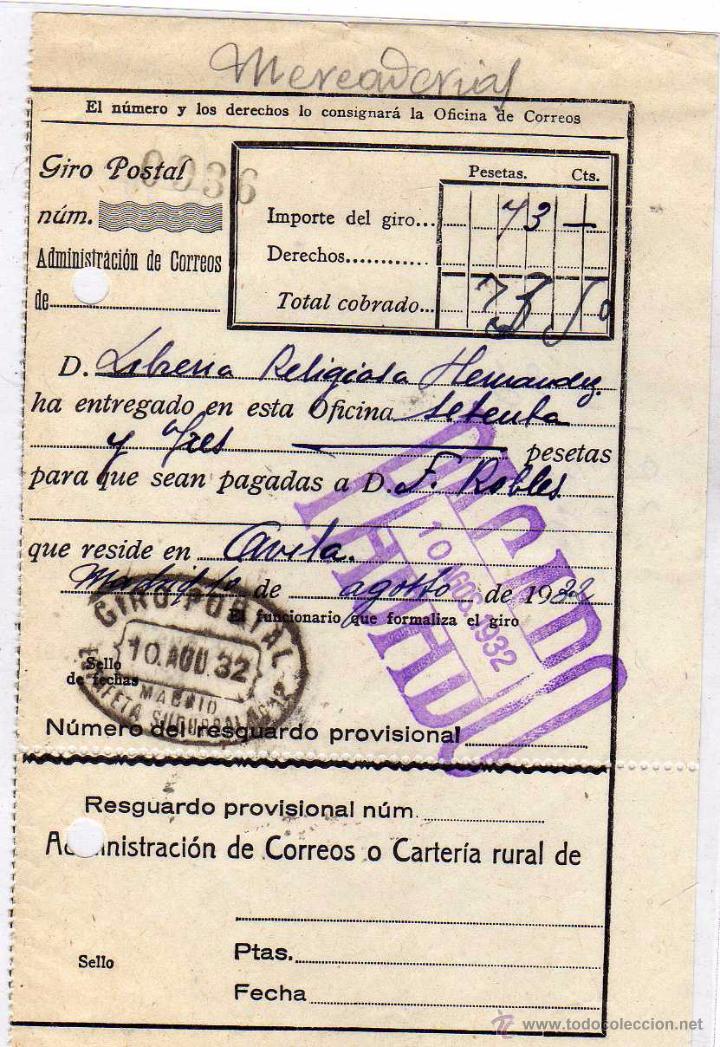 Mercaderias
El número y los derechos lo consignará la Oficina de Correos
Giro Postal 0036
núm.
Administración de Correos
de
Pesetas. Cts.
Importe del giro... 73 —
Derechos
Total cobrado... 73 50
D. Libreria Religiosa Hernandez
ha entregado en esta Oficina setenta
y tres pesetas
para que sean pagadas a D. F. Robles
que reside en Avila.
Madrid 10 de agosto de 1932
El funcionario que formaliza el giro
GIRO POSTAL
10.AGO.32
MADRID
ESTAFETA SUCURSAL
Sello
de fechas
10 AGO 1932
Número del resguardo provisional
Resguardo provisional núm.
Administración de Correos o Cartería rural de
Ptas.
Sello
Fecha
www.todocoleccion.net